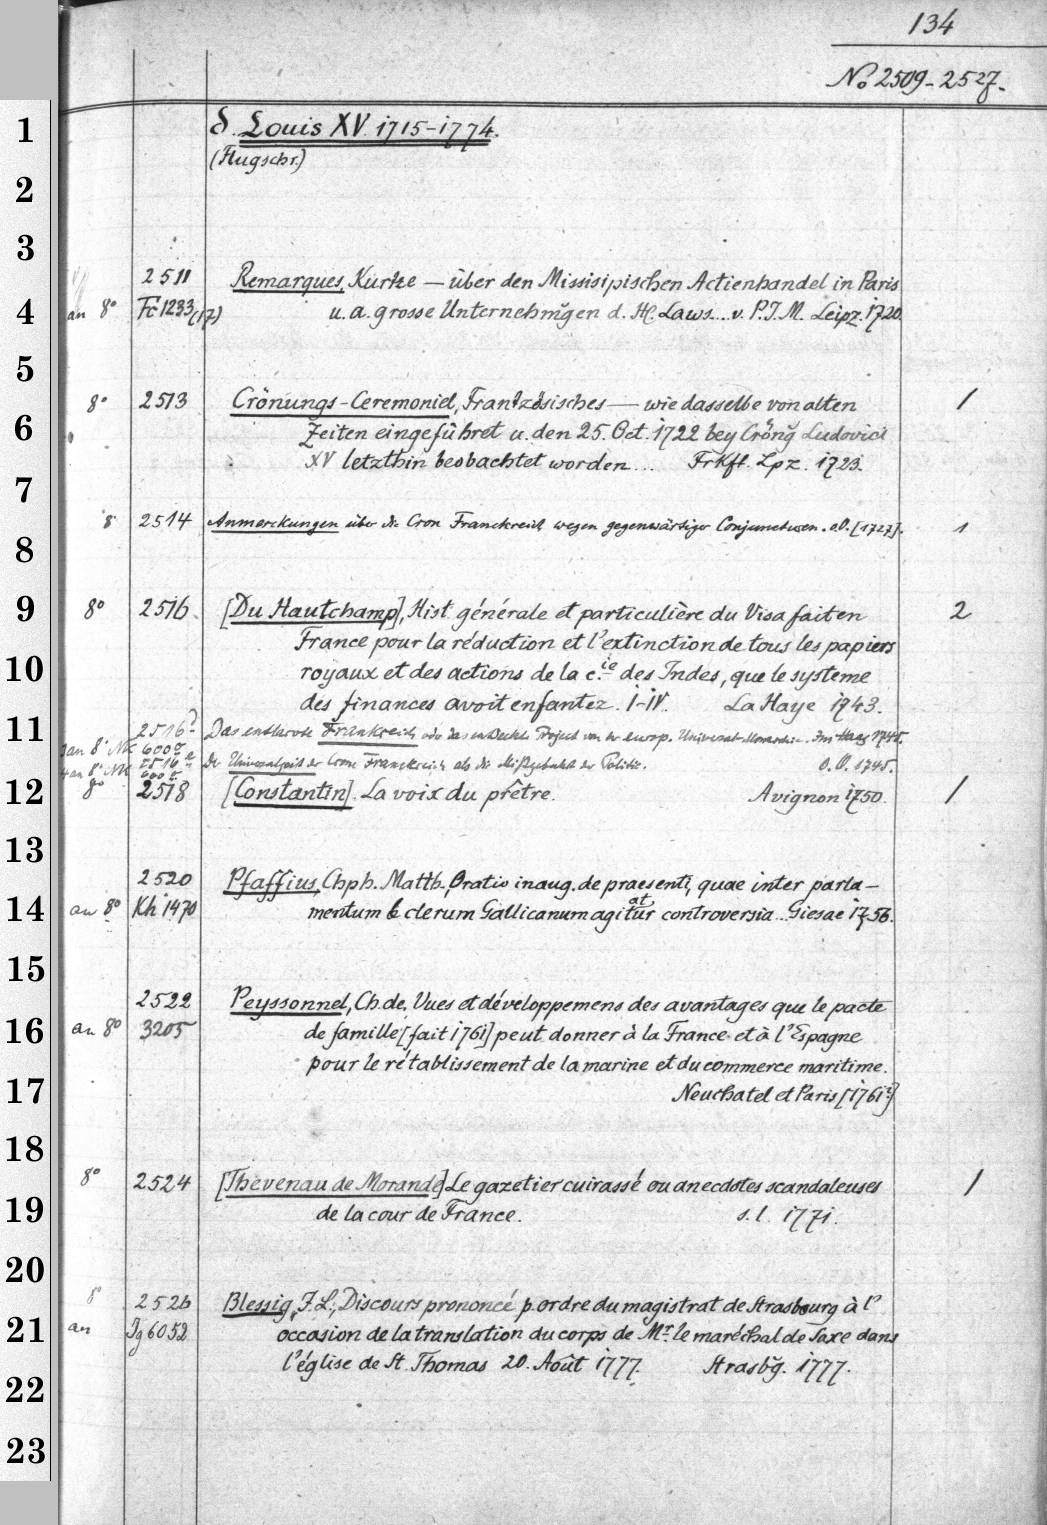 134
No 2509-2527.
1
δ. Louis XV. 1715-1774.
(Flugschr.)
2
3
2511 Remarques, Kurtze — über den Missisipischen Actienhandel in Paris
4 an 8° Fc 1233(17) u. a. grosse Unternehmg̃en d. H. Laws... v. P. J. M. Leipz. 1720.
5
8° 2513 Crönungs-Ceremoniel, Frantzösisches — wie dasselbe von alten 1
6 Zeiten eingeführet u. den 25. Oct. 1722 bey Cröng̃ Ludovici
XV letzthin beobachtet worden... Frkft. Lpz. 1723.
7
8 2514 Anmerckungen über die Cron Franckreich wegen gegenwärtiger Conjuncturen. o.O. [1727]. 1
8
9 8° 2516 [Du Hautchamp], Hist. générale et particulière du Visa fait en 2
France pour la réduction et l'extinction de tous les papiers
10 royaux et des actions de la c.ie des Indes, que le systeme
des finances avoit enfantez. I-IV. La Haye 1743.
11 2516 Das entlarvte Franckreich oder das entdeckte Project von der europ. Universal-Monarchie. Im Haag 1745.
an 8° NK 6000
an 8° NK 2516 Der Universalgeist der Crone Franckreich als die Mißgeburt der Politic. O. O. 1745.
12 8° 2518 [Constantin]. La voix du prêtre. Avignon 1750. 1
13
2520 Pfaffius, Chph. Matth. Oratio inaug. de praesenti, quae inter parla-
14 an 8° Kh 1470 mentum & clerum Gallicanum agitatur controversia... Giesae 1756.
15
2522 Peyssonnel, Ch. de, Vues et développemens des avantages que le pacte
16 an 8° 3205 de famille [fait 1761] peut donner à la France et à l'Espagne
pour le rétablissement de la marine et du commerce maritime.
17 Neuchatel et Paris [1761?]
18
8° 2524 [Thevenau de Morande] Le gazetier cuirassé ou anecdotes scandaleuses 1
19 de la cour de France. s. l. 1771.
20
8° 2526 Blessig, J. L., Discours prononcé p. ordre du magistrat de Strasbourg à l'
21 an Jg 6052 occasion de la translation du corps de Mr. le maréchal de Saxe dans
l'église de St. Thomas 20. Août 1777. Strasbg̃. 1777.
22
23